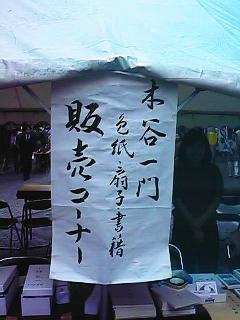 木谷一門
色紙・扇子書籍
販売コーナー